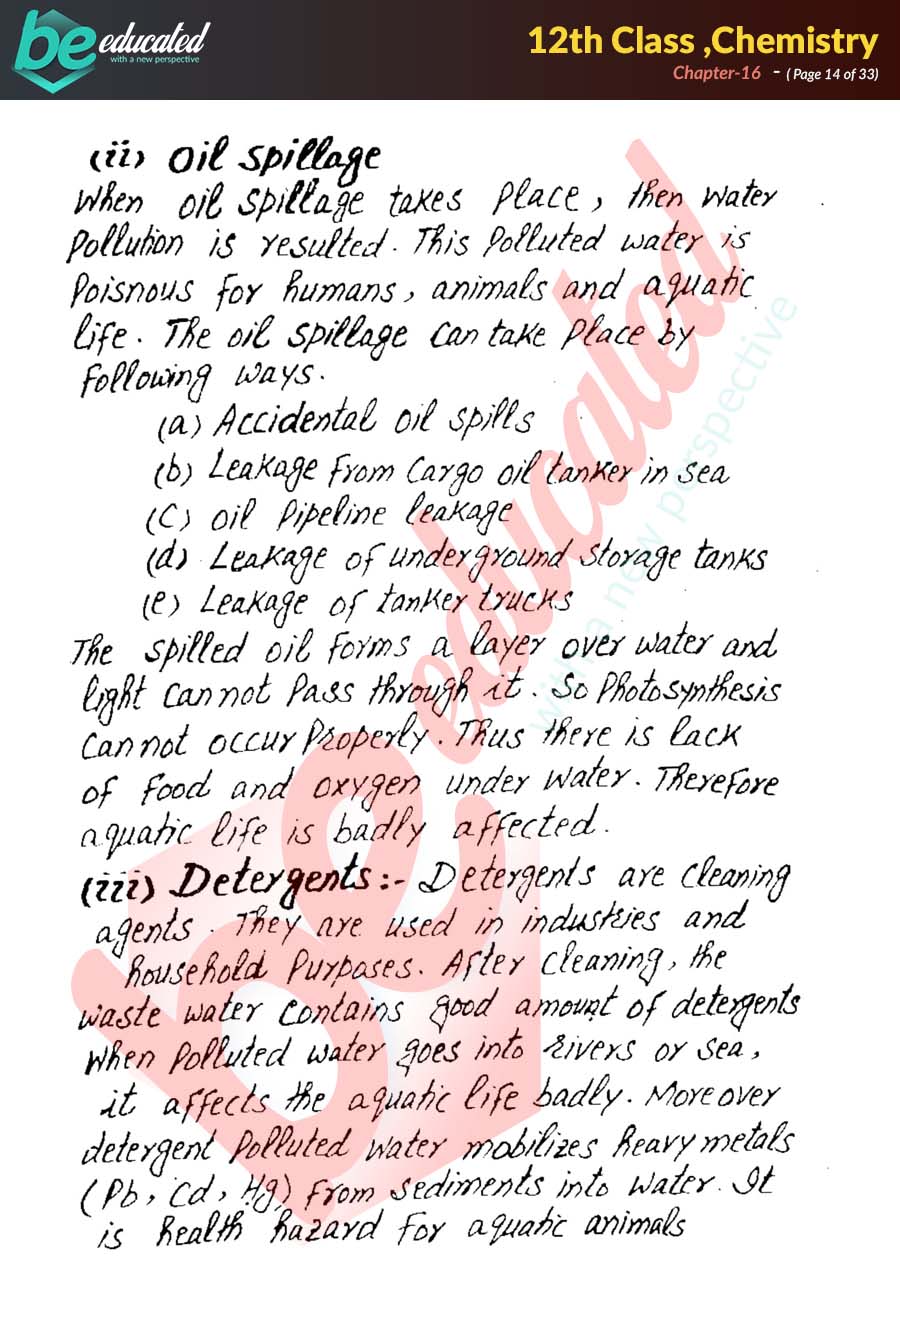 be educated
with a new perspective
12th Class ,Chemistry
Chapter-16 - ( Page 14 of 33)
(ii) Oil Spillage
When oil spillage takes Place, then Water
Pollution is resulted. This Polluted water is
Poisnous for humans, animals and aquatic
life. The oil spillage can take Place by
following ways.
(a) Accidental oil spills
(b) Leakage from Cargo oil tanker in sea
(C) oil Pipeline leakage
(d) Leakage of underground storage tanks
(e) Leakage of tanker trucks
The spilled oil forms a layer over water and
light cannot Pass through it. So Photosynthesis
cannot occur Properly. Thus there is lack
of food and oxygen under water. Therefore
aquatic life is badly affected.
(iii) Detergents:- Detergents are cleaning
agents. They are used in industries and
household Purpases. After cleaning, the
waste water contains good amount of detergents
When Polluted water goes into rivers or sea,
it affects the aquatic life badly. Moreover
detergent Polluted water mobilizes heavy metals
(Pb, Cd, Hg) from sediments into water. It
is health hazard for aquatic animals
be educated
with a new perspective